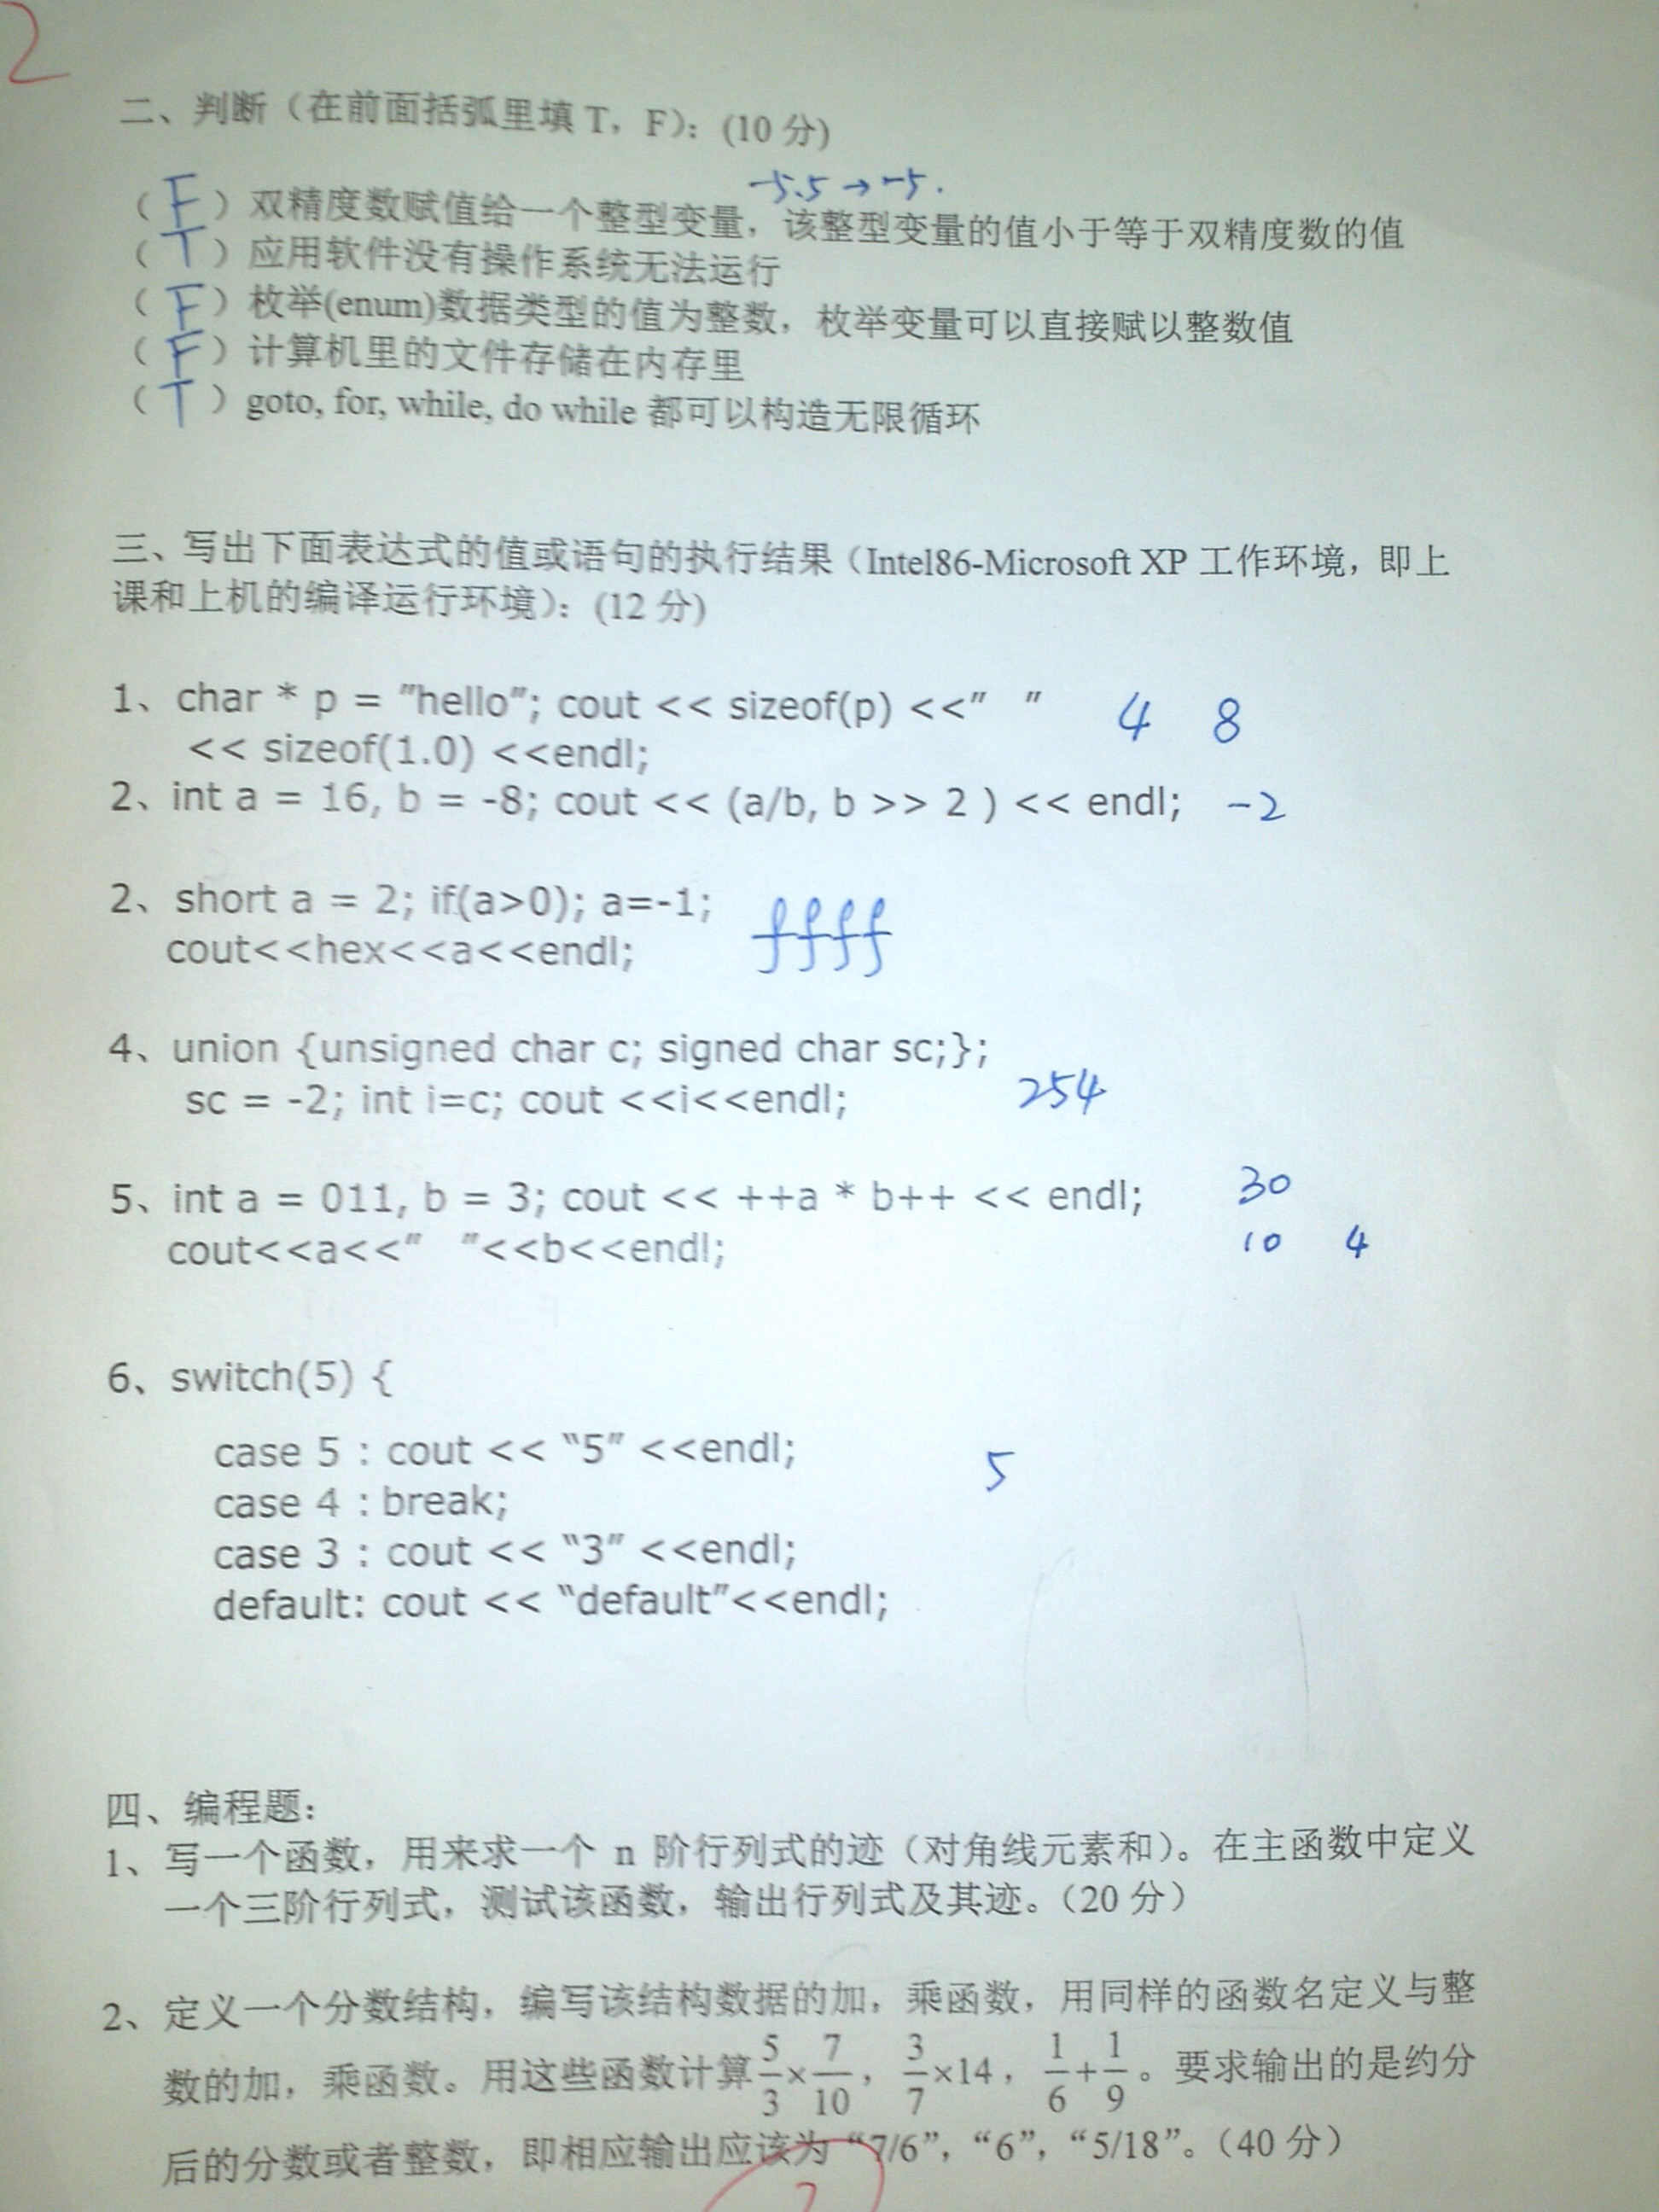 2
二、判断（在前面括弧里填 T，F）：(10 分)
-5.5 → -5.
（ F ）双精度数赋值给一个整型变量，该整型变量的值小于等于双精度数的值
（ T ）应用软件没有操作系统无法运行
（ F ）枚举(enum)数据类型的值为整数，枚举变量可以直接赋以整数值
（ F ）计算机里的文件存储在内存里
（ T ）goto, for, while, do while 都可以构造无限循环
三、写出下面表达式的值或语句的执行结果（Intel86-Microsoft XP 工作环境，即上
课和上机的编译运行环境）：(12 分)
1、char * p = ”hello”; cout << sizeof(p) <<” ” 4 8
<< sizeof(1.0) <<endl;
2、int a = 16, b = -8; cout << (a/b, b >> 2 ) << endl; -2
2、short a = 2; if(a>0); a=-1; ffff
cout<<hex<<a<<endl;
4、union {unsigned char c; signed char sc;};
sc = -2; int i=c; cout <<i<<endl; 254
5、int a = 011, b = 3; cout << ++a * b++ << endl; 30
cout<<a<<” ”<<b<<endl; 10 4
6、switch(5) {
case 5 : cout << “5” <<endl; 5
case 4 : break;
case 3 : cout << “3” <<endl;
default: cout << “default”<<endl;
四、编程题：
1、写一个函数，用来求一个 n 阶行列式的迹（对角线元素和）。在主函数中定义
一个三阶行列式，测试该函数，输出行列式及其迹。（20 分）
2、定义一个分数结构，编写该结构数据的加，乘函数，用同样的函数名定义与整
数的加，乘函数。用这些函数计算 5/3 × 7/10 ， 3/7 ×14 ， 1/6 + 1/9 。要求输出的是约分
后的分数或者整数，即相应输出应该为“7/6”，“6”，“5/18”。（40 分）